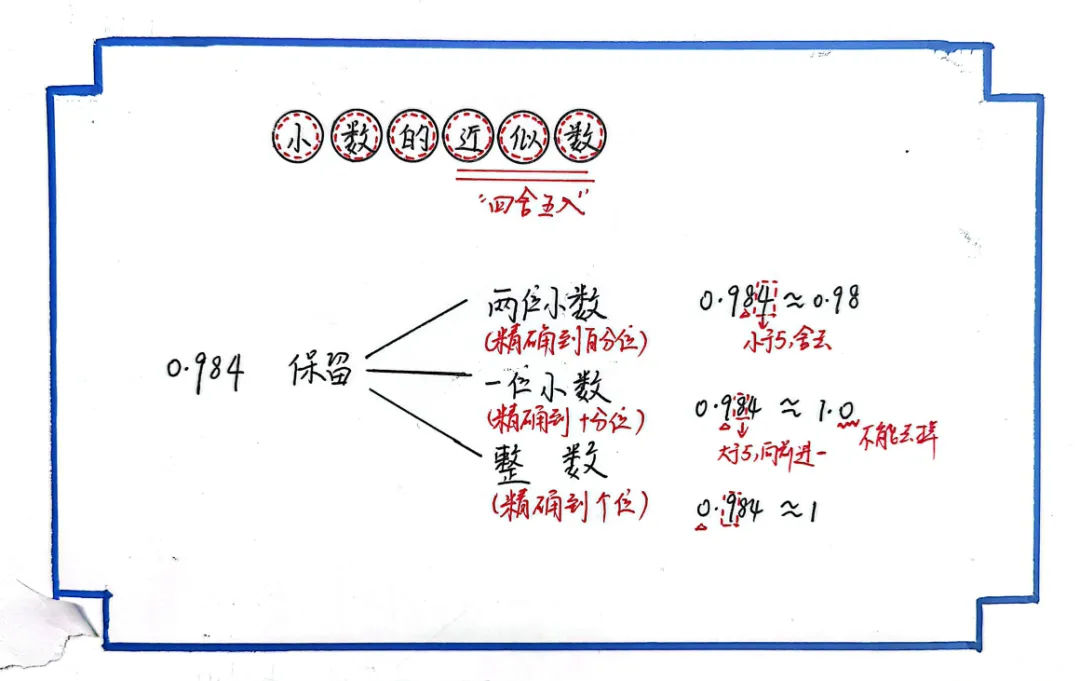 小数的近似数
"四舍五入"
两位小数
(精确到百分位)
0.984≈0.98
小于5,舍去
0.984 保留
一位小数
(精确到十分位)
0.984≈1.0
大于5,向前进一
不能去掉
整数
(精确到个位)
0.984≈1